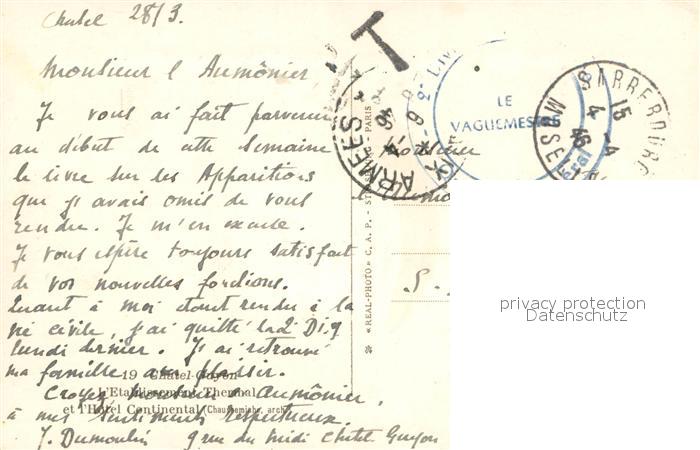 Chatel 28/3.
Monsieur l'Aumônier
Je vous ai fait parvenir
au début de cette semaine
le livre sur les Apparitions
que j'avais omis de vous
rendre. Je m'en excuse.
Je vous espère toujours satisfait
de vos nouvelles fonctions.
Quant à moi étant rendu à la
vie civile, j'ai quitté la 2e D.I.
lundi dernier. J'ai retrouvé
ma famille avec plaisir.
Croyez, Monsieur l'Aumônier,
à mes sentiments respectueux.
J. Dumoulin 9 rue du Midi Chatel Guyon
19 Chatel-Guyon
L'Etablissement Thermal
et l'Hôtel Continental (Chaussemiche, arch.)
«REAL-PHOTO» C. A. P. - PARIS
T
ARMÉES
LE
VAGUEMESTRE
SARREBOURG
15
4
46
MOSELLE
Monsieur
S.
privacy protection
Datenschutz